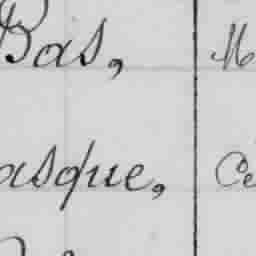 Bas, M
asque, Ce